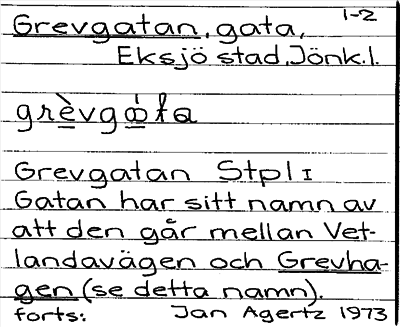 1-2
Grevgatan, gata,
Eksjö stad, Jönk.l.
grèvgàta
Grevgatan Stpl I
Gatan har sitt namn av
att den går mellan Vet-
landavägen och Grevha-
gen (se detta namn).
forts: Jan Agertz 1973